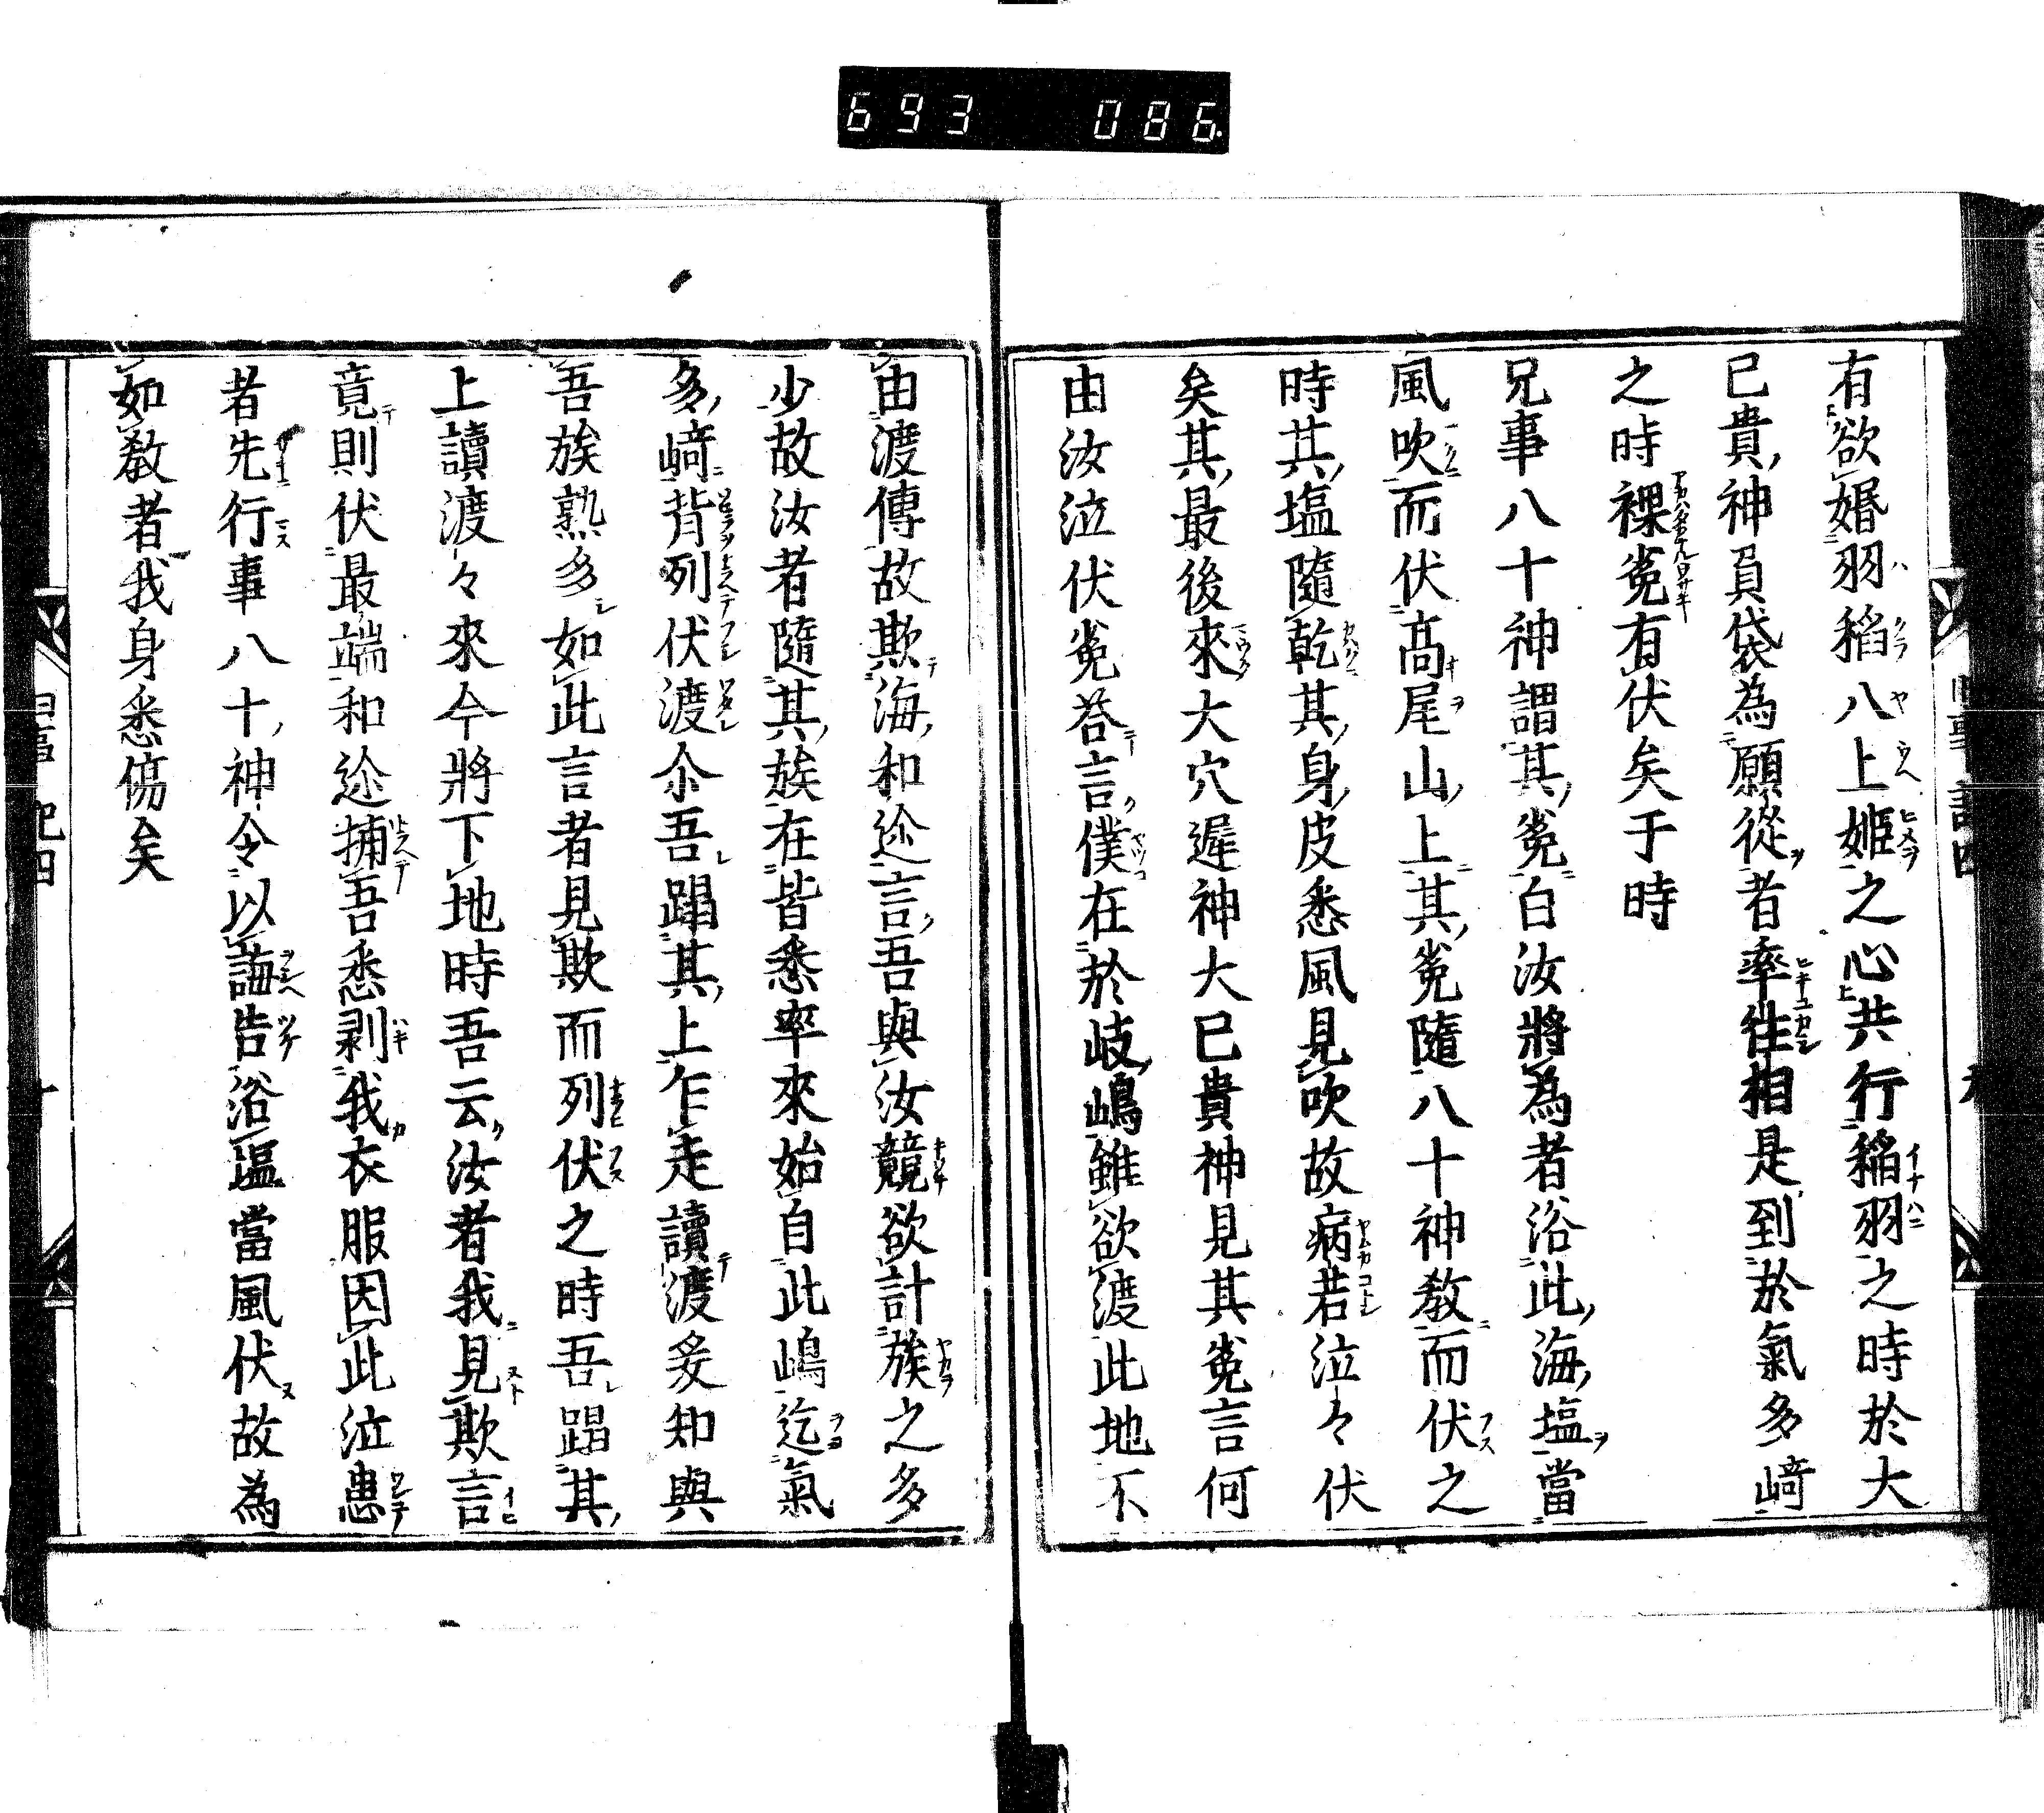 693 086.
有欲婚羽稻八上姬之心共行稲羽之時於大
已貴神負袋為願從者率往相是到於氣多﨑
之時裸菟有伏矣于時
兄事八十神謂其菟白汝將為者浴此海塩當
風吹而伏髙尾山上其菟隨八十神教而伏之
時其塩隨乾其身皮悉風見吹故病若泣々伏
矣其最後來大穴遲神大已貴神見其菟言何
由汝泣伏菟荅言僕在於岐嶋雖欲渡此地不
由渡傳故欺海和迩言吾與汝競欲計族之多
少故汝者隨其族在皆悉率來始自此嶋迄氣
多﨑背列伏渡尒吾蹋其上乍走讀渡爰知與
吾族熟多如此言者見欺而列伏之時吾蹋其
上讀渡々來今將下地時吾云汝者我見欺言
竟則伏最端和迩捕吾悉剥我衣服因此泣患
者先行事八十神令以誨告浴塩當風伏故為
如教者我身悉傷矣